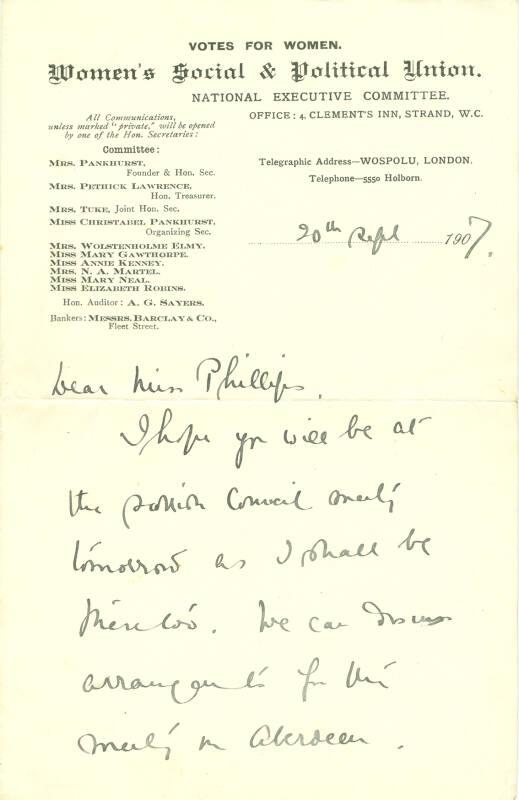 VOTES FOR WOMEN.
Women's Social & Political Union.
NATIONAL EXECUTIVE COMMITTEE.
All Communications,
unless marked "private," will be opened
by one of the Hon. Secretaries:
Committee:
MRS. PANKHURST,
Founder & Hon. Sec.
MRS. PETHICK LAWRENCE,
Hon. Treasurer.
MRS. TUKE, Joint Hon. Sec.
MISS CHRISTABEL PANKHURST,
Organizing Sec.
MRS. WOLSTENHOLME ELMY.
MISS MARY GAWTHORPE.
MISS ANNIE KENNEY.
MRS. N. A. MARTEL.
MISS MARY NEAL.
MISS ELIZABETH ROBINS.
Hon. Auditor: A. G. SAYERS.
Bankers: MESSRS. BARCLAY & CO.,
Fleet Street.
OFFICE: 4, CLEMENT'S INN, STRAND, W.C.
Telegraphic Address—WOSPOLU, LONDON.
Telephone—5550 Holborn.
20th Sept 1907.
Dear Miss Phillips,
I hope you will be at
the Scottish Council meeting
tomorrow as I shall be
there too. We can discuss
arrangements for the
meeting in Aberdeen.